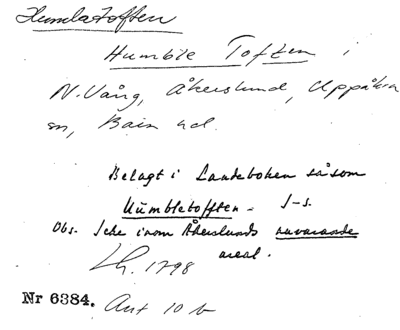 Humlatoften
Humble Toften i
N. Vång, Åkerslund, Uppåkra
sn, Bara hd.
Belagt i Landeboken såsom
Humbletofften = J-s.
Obs. Icke inom Åkerslunds nuvarande
areal.
Lh. 1798
Nr 6384. Ant 10 b